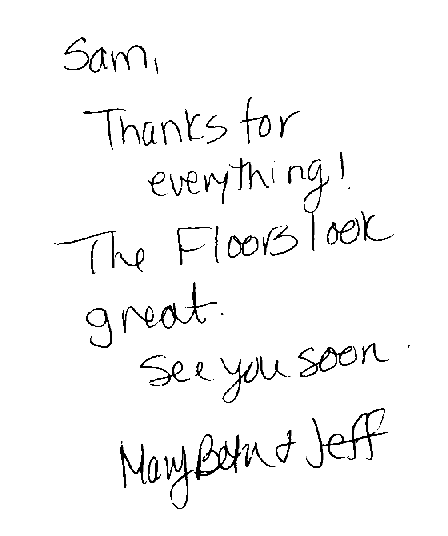 Sam,
Thanks for
everything!
The Floors look
great.
See you soon.
Mary Beth & Jeff